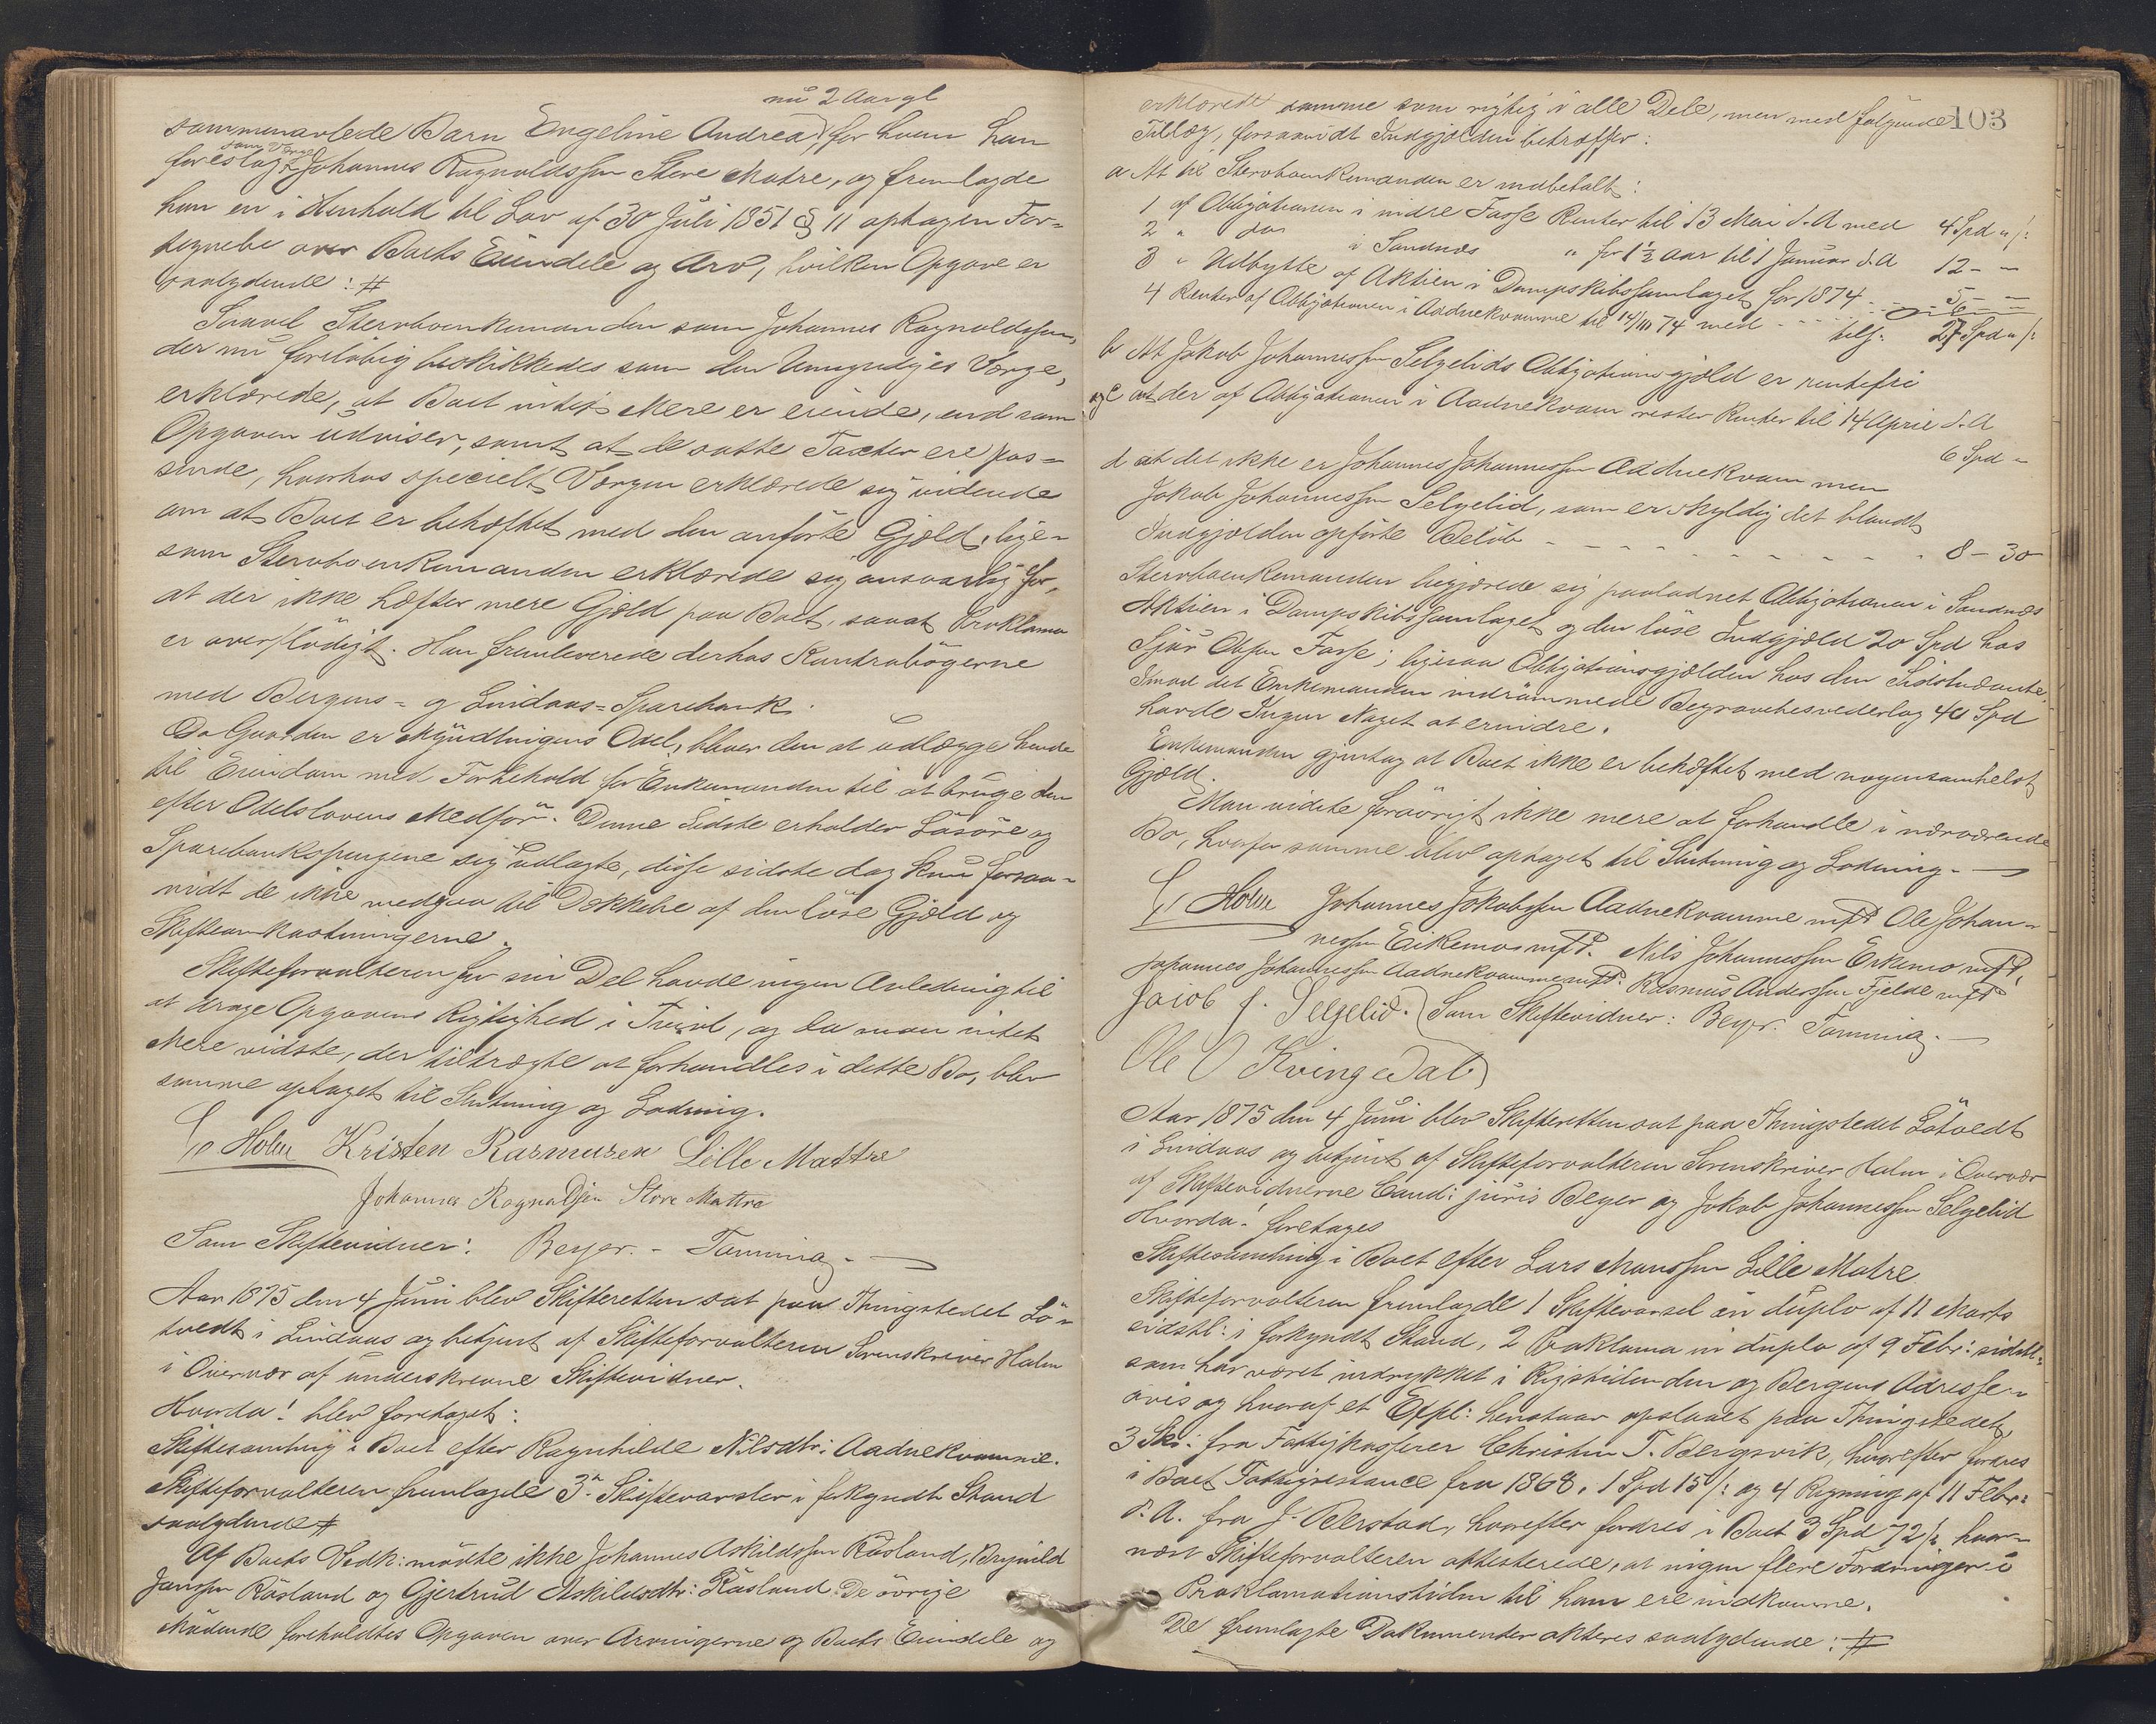 nu 2 Aar gl
sammenavlede Barn Engeline Andrea, for hvem han
som Værge
foreslog Johannes Ragnaldssøn Store Matre, og fremlagde
han en i Henhold til Lov af 30 Juli 1851 § 11 optagen For-
tegnelse over Boets Eiendele og Arv, hvilken Opgave er
saalydende: #
Saavel Stervboenkemanden som Johannes Ragnaldssøn,
der nu foreløbig beskikkedes som den Umyndiges Værge,
erklærede, at Boet intet Mere er eiende, end som
Opgaven udviser, samt at de satte Taxter ere pas-
sende, hvorhos specielt Værgen erklærede sig vidende
om at Boet er behæftet med den anførte Gjæld, lige-
som Stervboenkemanden erklærede sig ansvarlig for,
at der ikke hæfter mere Gjæld paa Boet, saaat Proklama
er overflødigt. Han fremleverede derhos Kontrabøgerne
med Bergens- og Lindaas-Sparebank.
Da Gaarden er Myndtlingens Odel, bliver den at udlægge hende
til Eiendom med Forbehold for Enkemanden til at bruge den
efter Odelslovens Medfør. Denne Sidste erholder Løsøre og
Sparebankspengene sig udlagte, disse sidste dog kun forsaa-
vidt de ikke medgaa til Dækkelse af den løse Gjæld og
Skifteomkostningerne.
Skifteforvalteren for sin Del havde ingen Anledning til
at drage Opgavens Rigtighed i Tvivl, og da man intet
Mere vidste, der tiltrægte at forhandles i dette Bo, blev
samme optaget til Slutning og Lodning.
Holm Kristen Rasmusen Lille Mattre
Johannes Ragnaldsen Store Mattre
Som Skiftevidner: Beyer. - Tamming. -
Aar 1875 den 4 Juni blev Skifteretten sat paa Thingstedet Lø-
tvedt i Lindaas og betjent af Skifteforvalteren Sorenskriver Holm
i Overvær af underskrevne Skiftevidner.
Hvorda! blev foretaget:
Skiftesamling i Boet efter Ragnhilde Nilsdtr: Aadnekvamme.
Skifteforvalteren fremlagde 3 Skiftevarsler i forkyndt Stand
saalydende #
Af Boets Vedk: mødte ikke Johannes Askildssøn Røsland, Brynild
Janssøn Røsland og Gjertrud Askildsdtr: Røsland. De øvrige
Mødende foreholdtes Opgaven over Arvingerne og Boets Eiendele og
103
erklærede samme som rigtig i alle Dele, men med følgende
Tillæg, forsaavidt Indgjælden betræffer:
a At til Stervboenkemanden er indbetalt:
1 af Obligationen i indre Fosse Renter til 13 Mai d.A med 4 Spd " /:
2 " do i Sandnæs " for 1½ Aar til 1 Januar d.A 12 - "
3 " Udbytte af Aktien i Dampskibssamlaget for 1874 - - - 5 - "
4 Renter af Obligationen i Aadnekvamme til 14/III 74 med - - - 6 - "
tils: 27 Spd " /:
b At Jakob Johannessøn Selgelids Obligationsgjæld er rentefri
og c at der af Obligationen i Aadnekvam rester Renter til 14 April d.A
6 Spd "
d at det ikke er Johannes Johannessøn Aadnekvam men
Jakob Johannessøn Selgelid, som er skyldig det blandt
Indgjælden opførte Beløb - - - - - - - - 8 - 30
Stervboenkemanden begjærede sig paalodnet Obligationen i Sandnæs
Aktien i Dampskibssamlaget og den løse Indgjæld 20 Spd hos
Sjur Olssøn Fosse; ligesaa Obligationsgjælden hos den Sidstnævnte.
Imod det Enkemanden indrømmede Begravelsesvederlag 40 Spd
havde Ingen Noget at erindre.
Enkemanden gjentog at Boet ikke er behæftet med nogensomhelst
Gjæld.
Man vidste forøvrigt ikke mere at forhandle i nærværende
Bo, hvorfor samme blev optaget til Slutning og Lodning. -
Holm Johannes Jakobssøn Aadnekvamme m f P Ole Johan-
nessøn Eikemo m f P. Nils Johannessøn Eikemo m f P.
Johannes Johannessøn Aadnekvamme m f P. Rasmus Anderssøn Fjelde m f P
Jaiob J. Selgelid. Som Skiftevidner: Beyer. Tamming. -
Ole O Kvingedal
Aar 1875 den 4 Juni blev Skifteretten sat paa Thingstedet Løtvedt
i Lindaas og betjent af Skifteforvalteren Sorenskriver Holm i Overvær
af Skiftevidnerne Cand: juris Beyer og Jakob Johannessøn Selgelid
Hvorda! foretages
Skiftesamling i Boet efter Lars Monssøn Lille Matre
Skifteforvalteren fremlagde 1 Skiftevarsel in duplo af 11 Marts
sidstl: i forkyndt Stand, 2 Proklama in duplo af 9 Febr: sidstl:
som har været indrykket i Rigstidenden og Bergens Adresse-
avis og hvoraf et Expl: henstaar opslaaet paa Thingstedet,
3 Skr: fra Fattigkasserer Christen T. Bergsvik, hvorefter fordres
i Boet Fattigrestance fra 1868. 1 Spd 15 /: og 4 Regning af 11 Febr:
d. A. fra J. Berstad, hvorefter fordres i Boet 3 Spd 72 /:, hvor-
næst Skifteforvalteren attesterede, at ingen flere Fordringer i
Proklamationstiden til ham ere indkomne.
De fremlagte Dokumenter akteres saalydende: #